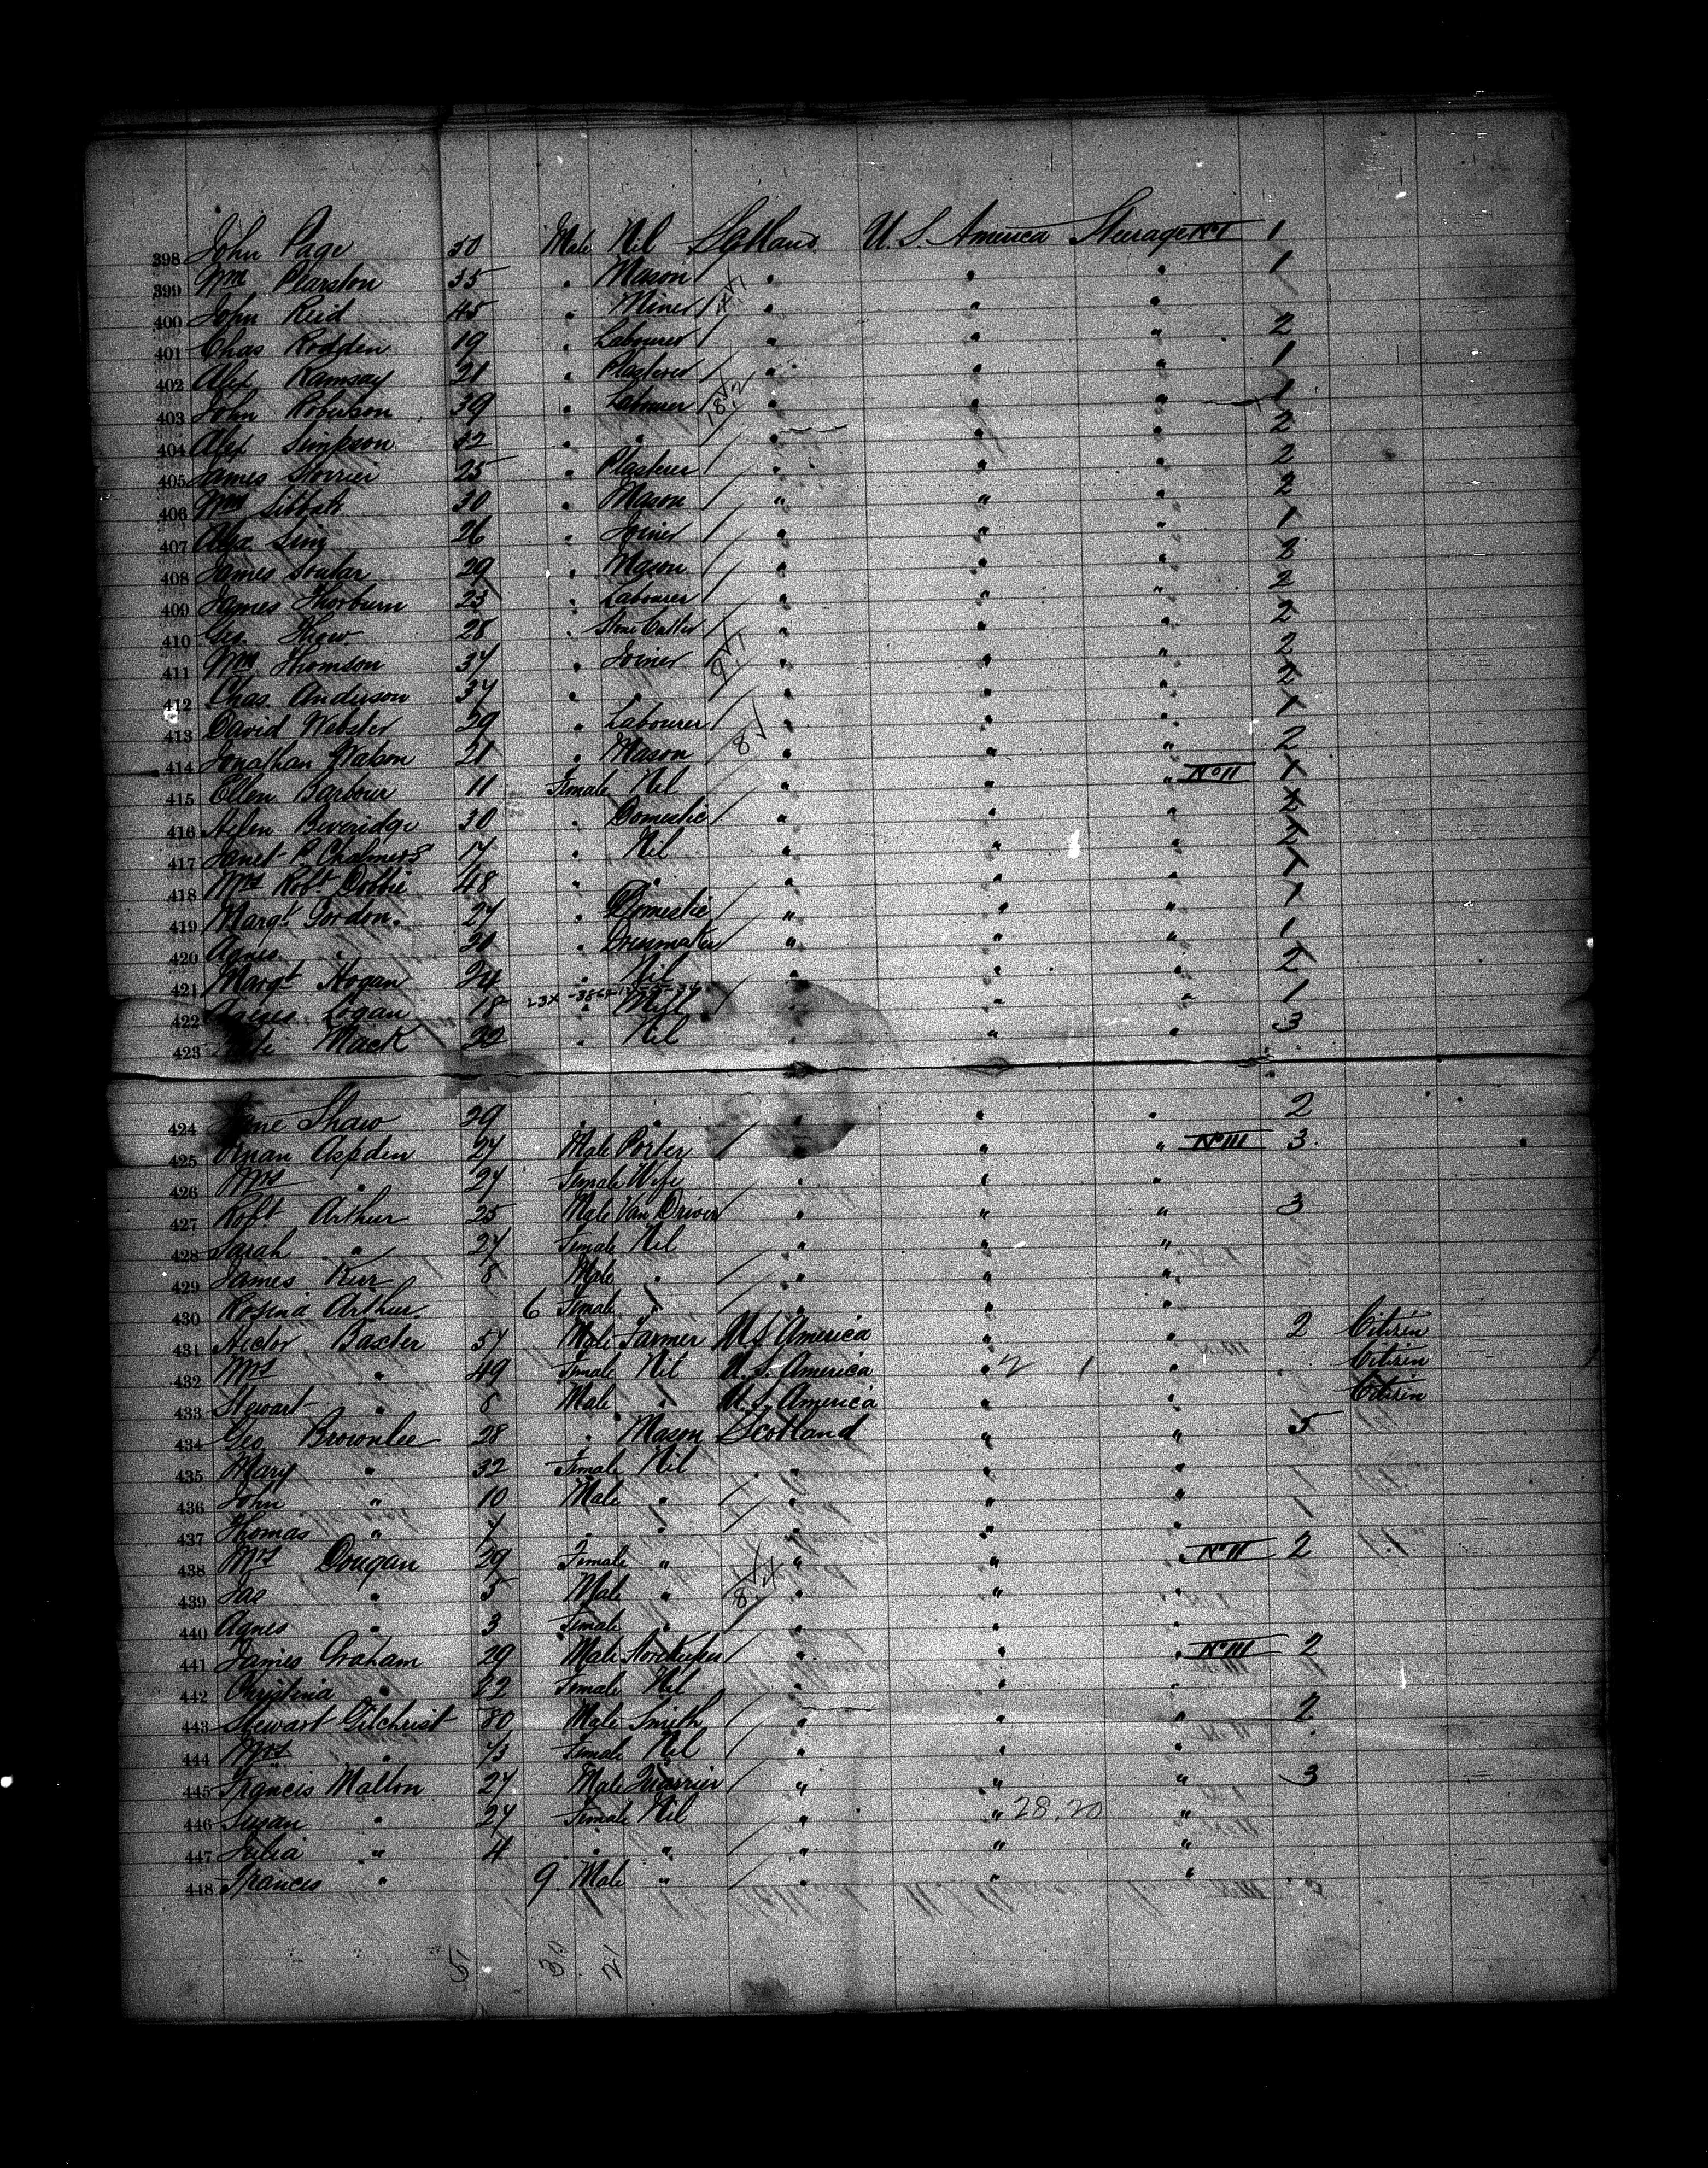 398 John Page 50 Male Nil Scotland U. S. America Steerage No I 1
399 Wm Pearston 35 " Mason " " " 1
400 John Reid 45 " Miner " " "
401 Chas Rodden 19 " Labourer " " " 2
402 Alex Ramsay 21 " Plasterer " " " 1
403 John Robertson 39 " Labourer " " " 1
404 Alex Simpson 32 " " " " " 2
405 James Storrier 25 " Plasterer " " " 2
406 Wm Sibbald 30 " Mason " " " 2
407 Alex. Sim 26 " Joiner " " " 1
408 James Soutar 29 " Mason " " " 2
409 James Thorburn 23 " Labourer " " " 2
410 Geo. Thow 28 " Stone Cutter " " " 2
411 Wm Thomson 37 " Joiner " " " 2
412 Chas. Anderson 37 " " " " " 2
413 David Webster 29 " Labourer " " " 1
414 Jonathan Watson 21 " Mason 8 " " " 2
415 Ellen Barbour 11 Female Nil " " " No II 1
416 Helen Beveridge 30 " Domestic " " " 2
417 Janet P. Chalmers 17 " Nil " " " 2
418 Mrs Robt Dobbie 48 " " " " " 1
419 Margt Gordon. 27 " Domestic " " " 1
420 Agnes " " Dressmaker " " " 1
421 Margt Hogan 24 " Nil " " " 2
422 Logan 18 " Mill " " " 1
423 Mack 22 " Nil " " " 3
424 Jane Shaw 29 " " " " " 2
425 Aspden 27 Male Porter " " " No III 3
426 Mrs " 27 Female Wife " " "
427 Robt Arthur 25 Male Van Driver " " " 3
428 Sarah " 27 Female Nil " " "
429 James Kerr 8 Male " " " "
430 Rosina Arthur. 6 Female " " " "
431 Hector Baxter 57 Male Farmer U.S. America " " 2 Citizen
432 Mrs " 49 Female Nil U. S. America " 2 1 " Citizen
433 Stewart " 8 Male " U. S. America " " Citizen
434 Geo. Brownlee 28 " Mason Scotland " " 5
435 Mary " 32 Female Nil " " "
436 John " 10 Male " " " "
437 Thomas " 7 " " " " "
438 Mrs Dougan 29 Female " " " " No II 2
439 Jas " 5 Male " " " "
440 Agnes " 3 Female " " " "
441 James Graham 29 Male Storekeeper " " " No III 2
442 Christina " 22 Female Nil " " "
443 Stewart Gilchrist 80 Male Smith " " " 2
444 Mrs " 73 Female Nil " " "
445 Francis Mallon 27 Male Quarrier " " " 3
446 Susan " 27 Female Nil " " 28.20 "
447 Julia " 4 " " " " "
448 Francis " 9. Male " " " "
51 30 21